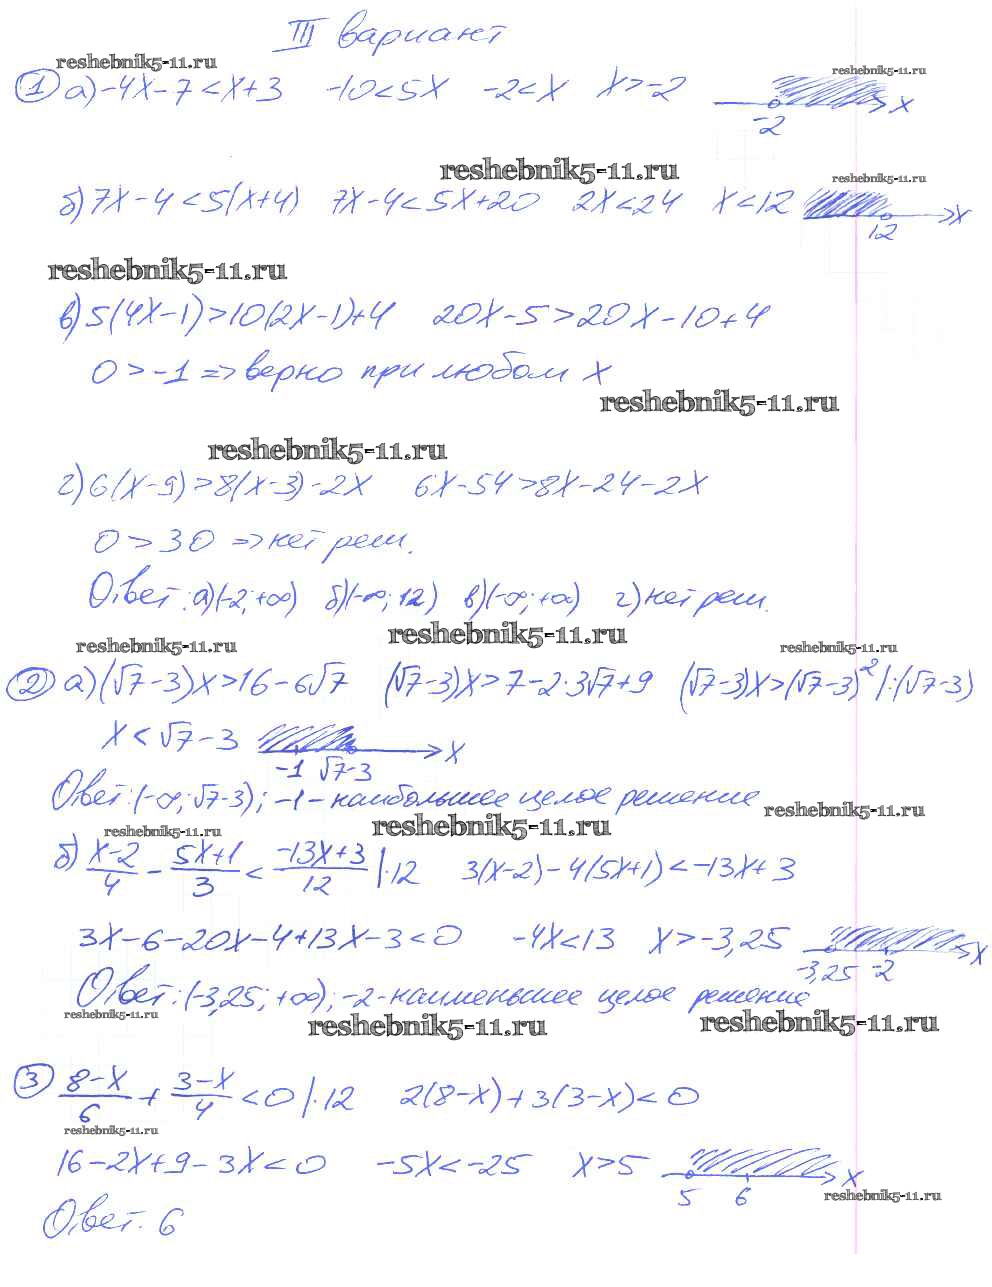 III вариант
reshebnik5-11.ru
reshebnik5-11.ru
1 а) -4x-7<x+3 -10<5x -2<x x>-2 x
-2
reshebnik5-11.ru
reshebnik5-11.ru
б) 7x-4<5(x+4) 7x-4<5x+20 2x<24 x<12 x
12
reshebnik5-11.ru
в) 5(4x-1)>10(2x-1)+4 20x-5>20x-10+4
0>-1 => верно при любом x
reshebnik5-11.ru
reshebnik5-11.ru
г) 6(x-9)>8(x-3)-2x 6x-54>8x-24-2x
0>30 => нет реш.
Ответ: а) (-2; +∞) б) (-∞; 12) в) (-∞; +∞) г) нет реш.
reshebnik5-11.ru
reshebnik5-11.ru
reshebnik5-11.ru
2 а) (√7-3)x>16-6√7 (√7-3)x>7-2·3√7+9 (√7-3)x>(√7-3)² |:(√7-3)
x<√7-3 x
-1 √7-3
Ответ: (-∞; √7-3); -1 - наибольшее целое решение
reshebnik5-11.ru
reshebnik5-11.ru
reshebnik5-11.ru
б) (x-2)/4 - (5x+1)/3 < (-13x+3)/12 |·12 3(x-2)-4(5x+1)<-13x+3
3x-6-20x-4+13x-3<0 -4x<13 x>-3,25 x
-3,25 -2
Ответ: (-3,25; +∞); -2 - наименьшее целое решение
reshebnik5-11.ru
reshebnik5-11.ru
reshebnik5-11.ru
3 (8-x)/6 + (3-x)/4 <0 |·12 2(8-x)+3(3-x)<0
reshebnik5-11.ru
16-2x+9-3x<0 -5x<-25 x>5 x
5 6
reshebnik5-11.ru
Ответ. 6